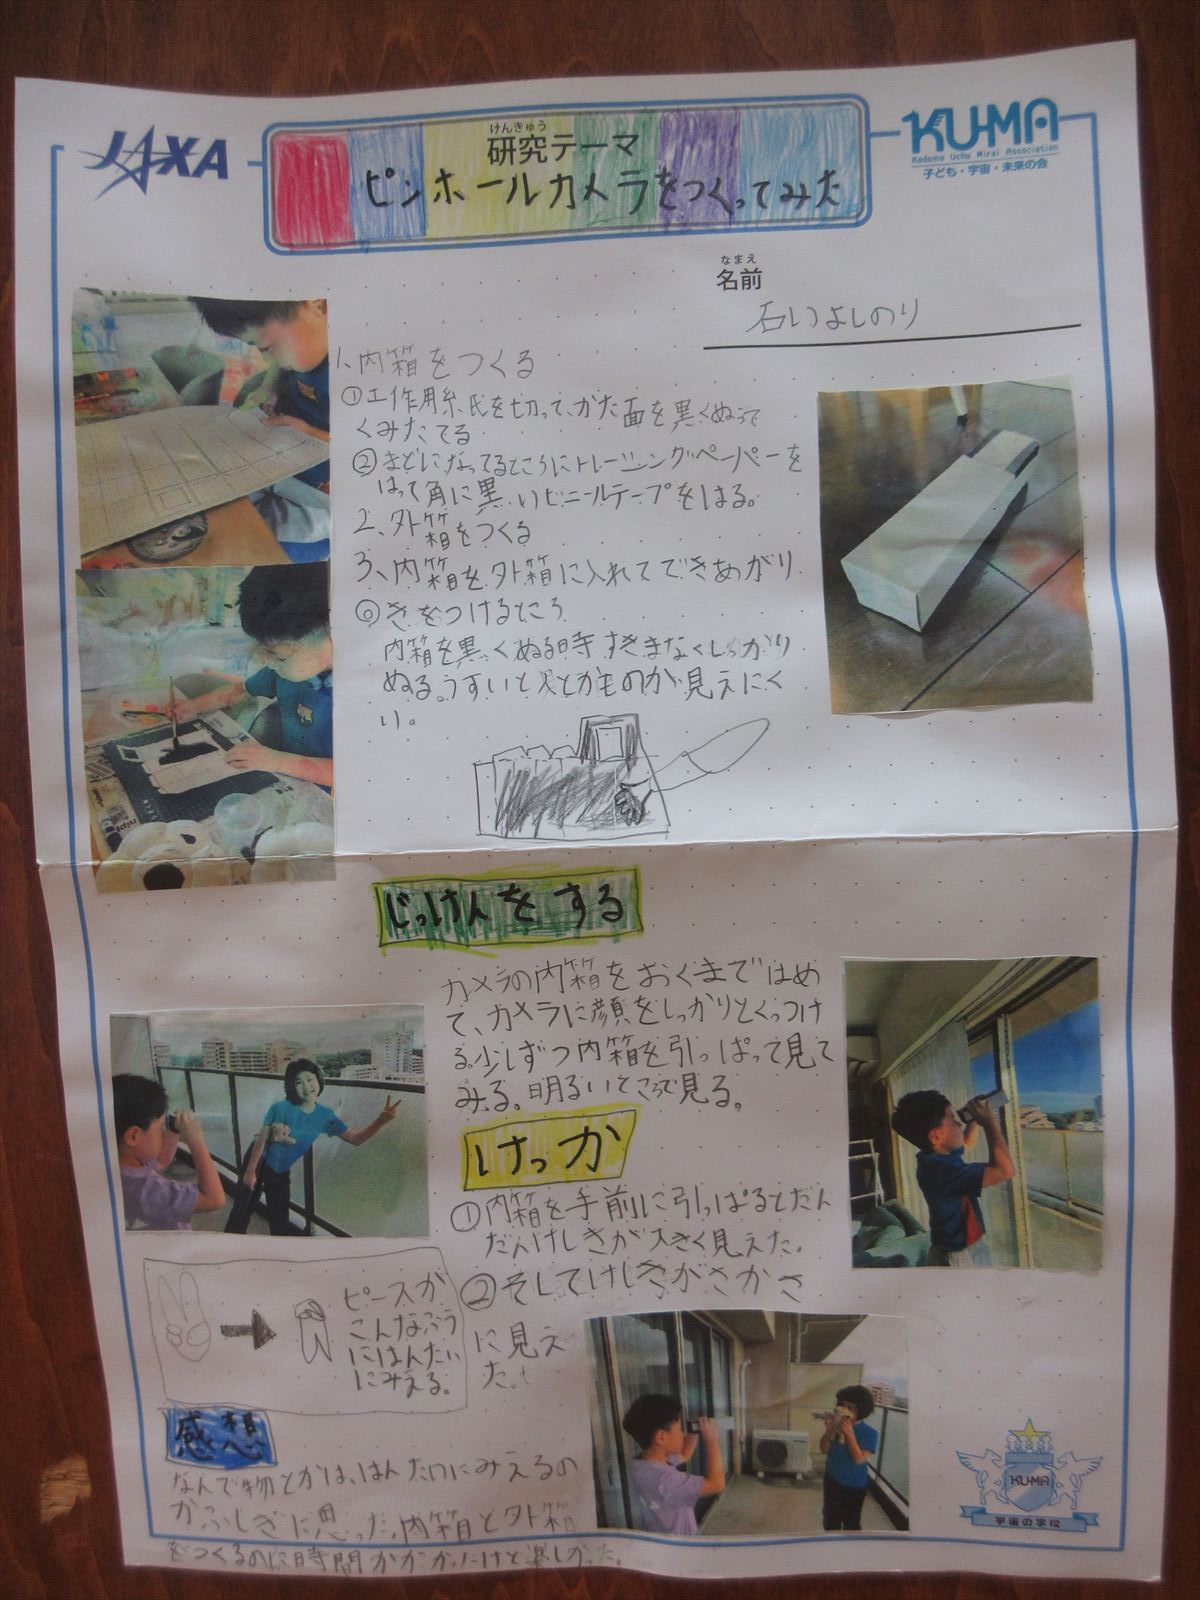 JAXA
けんきゅう
研究テーマ
ピンホールカメラをつくってみた
KU-MA
Kodomo Uchu Mirai Association
子ども・宇宙・未来の会
なまえ
名前
石いよしのり
1、内箱をつくる
①工作用紙を切って、かた面を黒くぬって
くみたてる
②まどになってるところにトレーシングペーパーを
はって角に黒いビニールテープをはる。
2、外箱をつくる
3、内箱を外箱に入れてできあがり
◎きをつけるところ
内箱を黒っくぬる時すきまなくしっかり
ぬる。うすいと人とかものが見えにく
い。
じっけんをする
カメラの内箱をおくまではめ
て、カメラに顔をしっかりとくっつけ
る。少しずつ内箱を引っぱって見て
みる。明るいところで見る。
けっか
①内箱を手前に引っぱるとだん
だんけしきが大きく見えた。
②そしてけしきがさかさ
に見え
た。
ピースが
こんなふう
にはんたい
にみえる。
感想
なんで物とかは、はんたいにみえるの
かふしぎに思った。内箱と外箱
をつくるのに時間がかかったけど楽しかった。
KU-MA
宇宙の学校